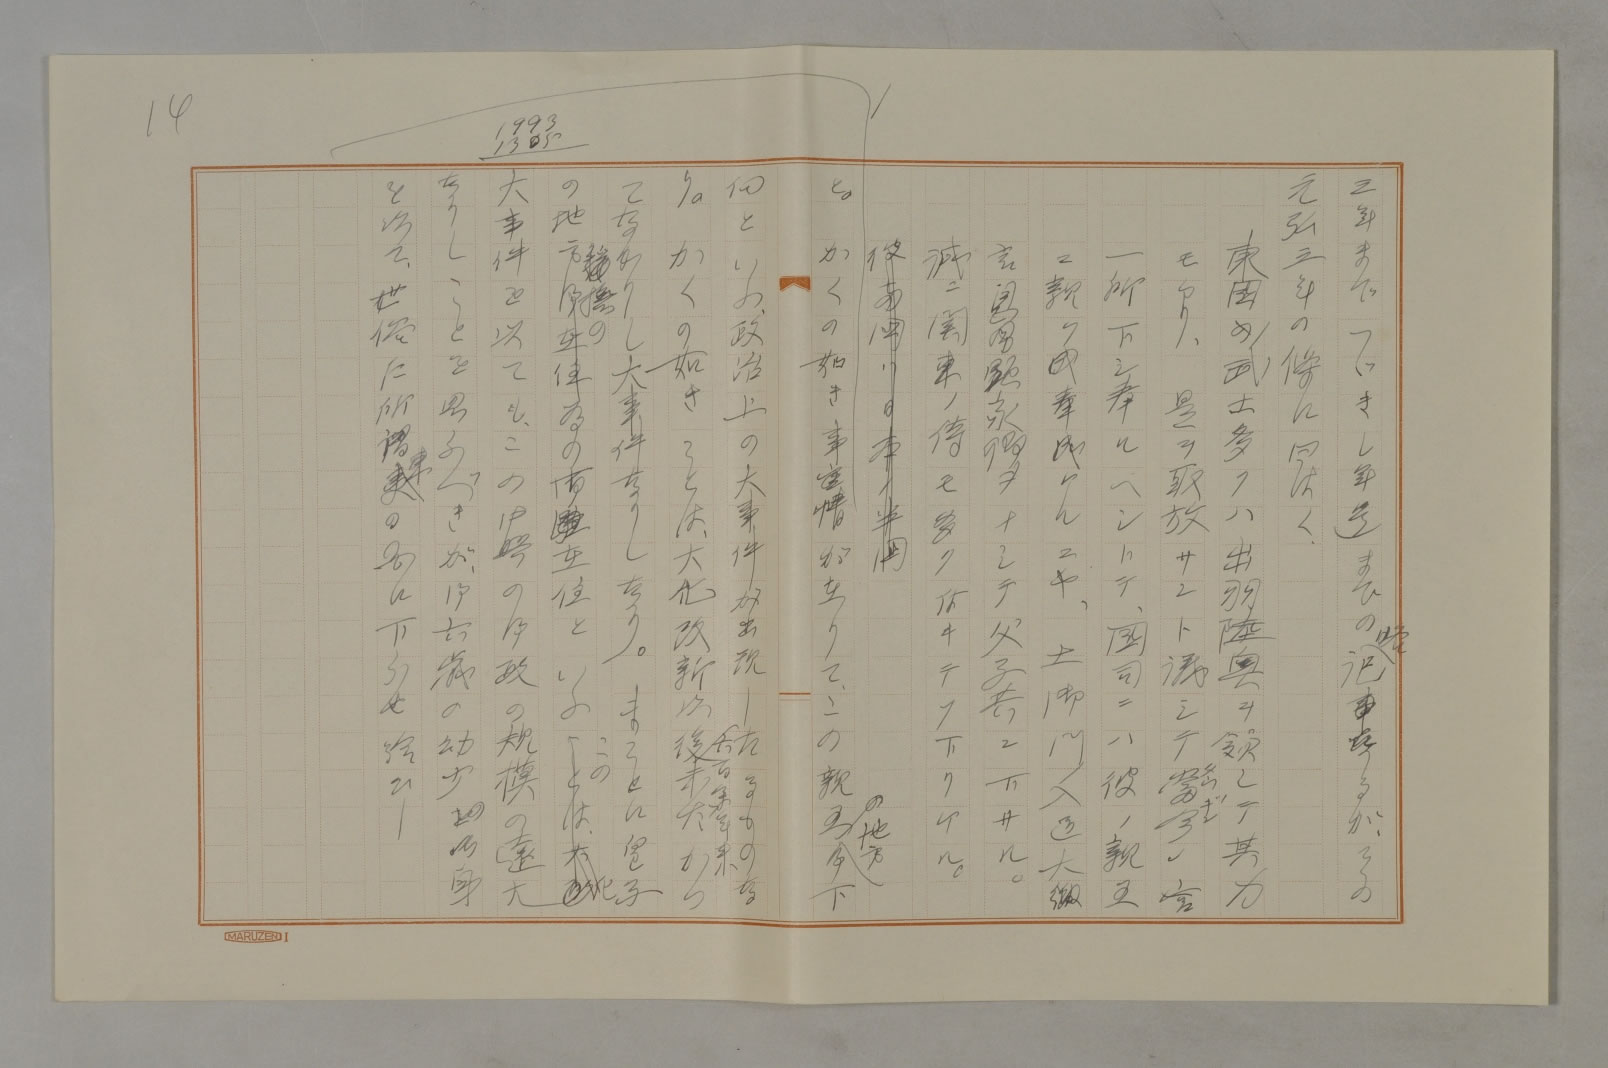 14
1993
1305
三年までつゞきし年迄まひの略記事なるが、その
元弘三年の條に曰はく、
東国ノ武士多クハ出羽陸奥ヲ領シテ其力
モアリ、是ヲ取放サントノ議シテ當今ノ宮
一所下シ奉ルベシトテ、國司ニハ彼ノ親王
ニ親ク成奉
ニヤ、土御門入道大納
言 顕家卿ヲナシテ父子共ニ下サル。
誠ニ関東ノ侍モ多ク付キテゾ下リケル。
彼奥州ハ日本ノ半国
と。かくの如き事情が在りて、この親王の地方御下
向といふ、政治上の大事件が出現したるものな
り。かくの如きことは、大化改新以後六百余年来未だかつ
てなかりし大事件なりしなり。まことに皇子
の地方鎮撫の 御在住といふことは、この
大事件を以ても、この時の御政の規模の遠大
なりしことを思ふべきが、御六歳の幼少の御身
を以て、世俗に所謂東の奥に下らせ給ひし
MARUZEN I